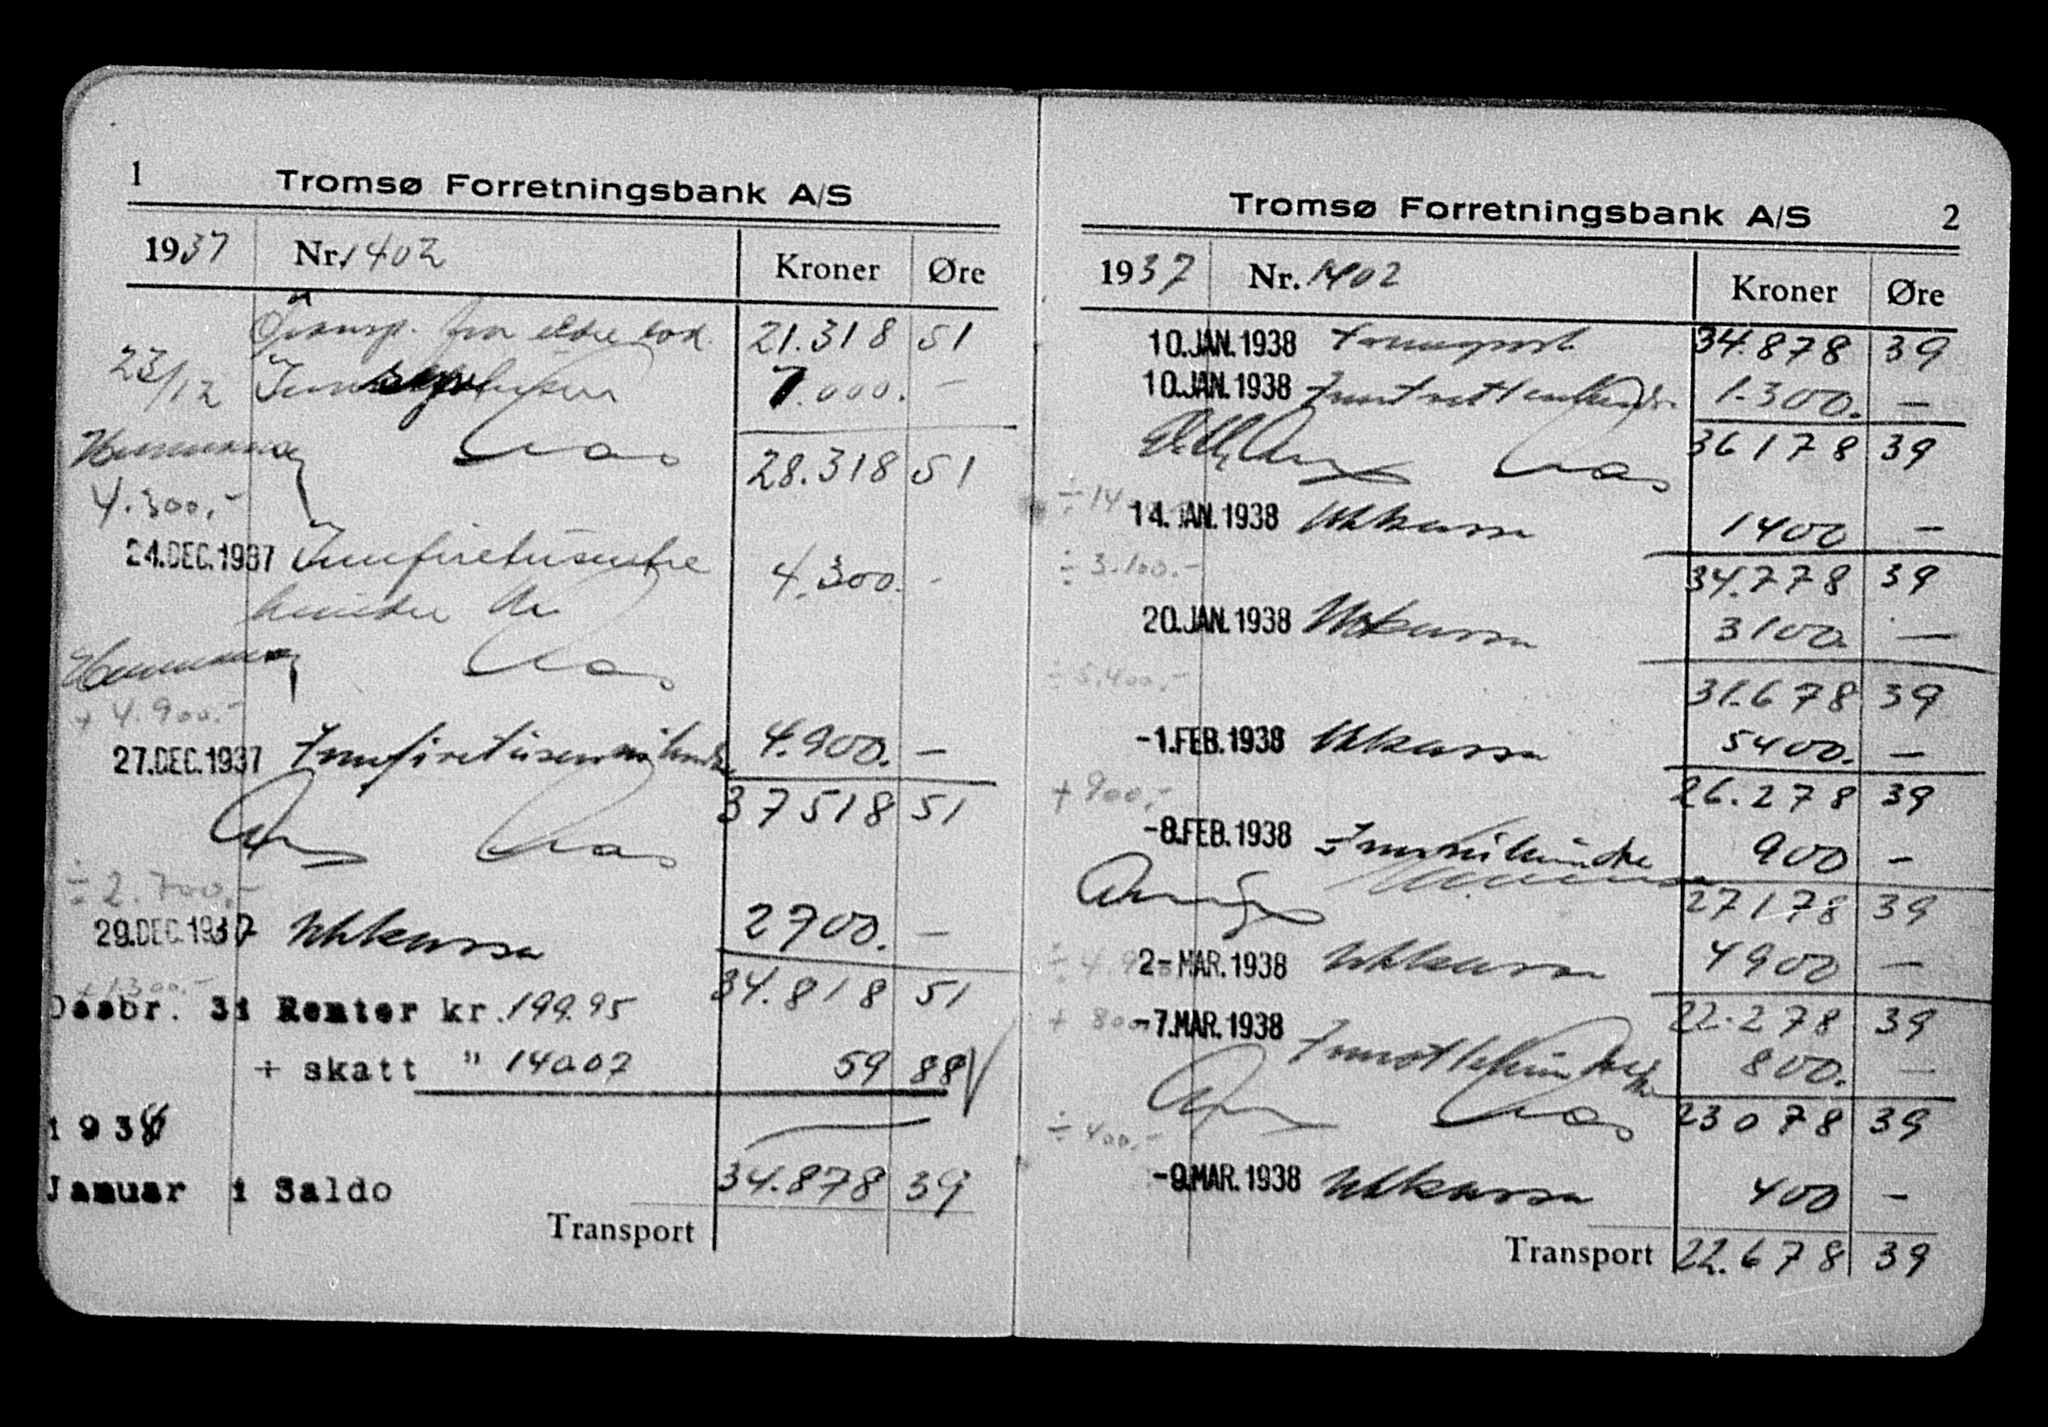 1
Tromsø Forretningsbank A/S
1937 Nr. 1402 Kroner Øre
Transp. fra eldre bok. 21.318 51
23/12 7.000. -
28.318 51
4.300,-
24.DEC.1937 Innfiretusentre 4.300. -
hundre kr
+ 4.900.-
27.DEC.1937 4.900. -
37518 51
÷ 2.700,-
29.DEC.1937 Uttkassa 2700. -
34.818 51
+ 1300.-
Desbr. 31 Renter kr. 199.95
÷ skatt " 140.07 59 88
1938
Januar 1 Saldo 34.878 39
Transport
Tromsø Forretningsbank A/S 2
1937 Nr. 1402 Kroner Øre
10.JAN.1938 Transport 34.878 39
10.JAN.1938 1.300. -
36178 39
÷ 14
14.JAN.1938 Uttkassa 1400 -
÷ 3.100.- 34.778 39
20.JAN.1938 Uttkassa 3100. -
÷ 5.400,- 31.678 39
-1.FEB.1938 Uttkassa 5400. -
+ 900,- 26.278 39
-8.FEB.1938 Innnihundre 900 -
27178 39
÷ 4.9
2-MAR.1938 Uttkassa 4900 -
+ 800 22.278 39
-7.MAR.1938 800. -
23078 39
÷ 400,-
-9.MAR.1938 Uttkassa 400 -
Transport 22.678 39